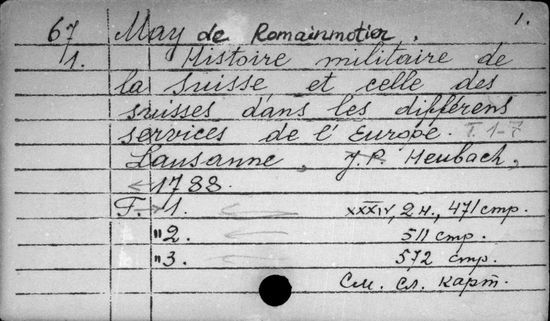 1.
67 May de Romainmotier.
1. Histoire militaire de
la suisse et celle des
suisses dans les différens
services de l'Europe. T. 1-7
Lausanne, J.P. Heubach,
1788.
T. 1. XXXIV, 2 н., 471 стр.
"2. 511 стр.
"3. 572 стр.
См. сл. карт.